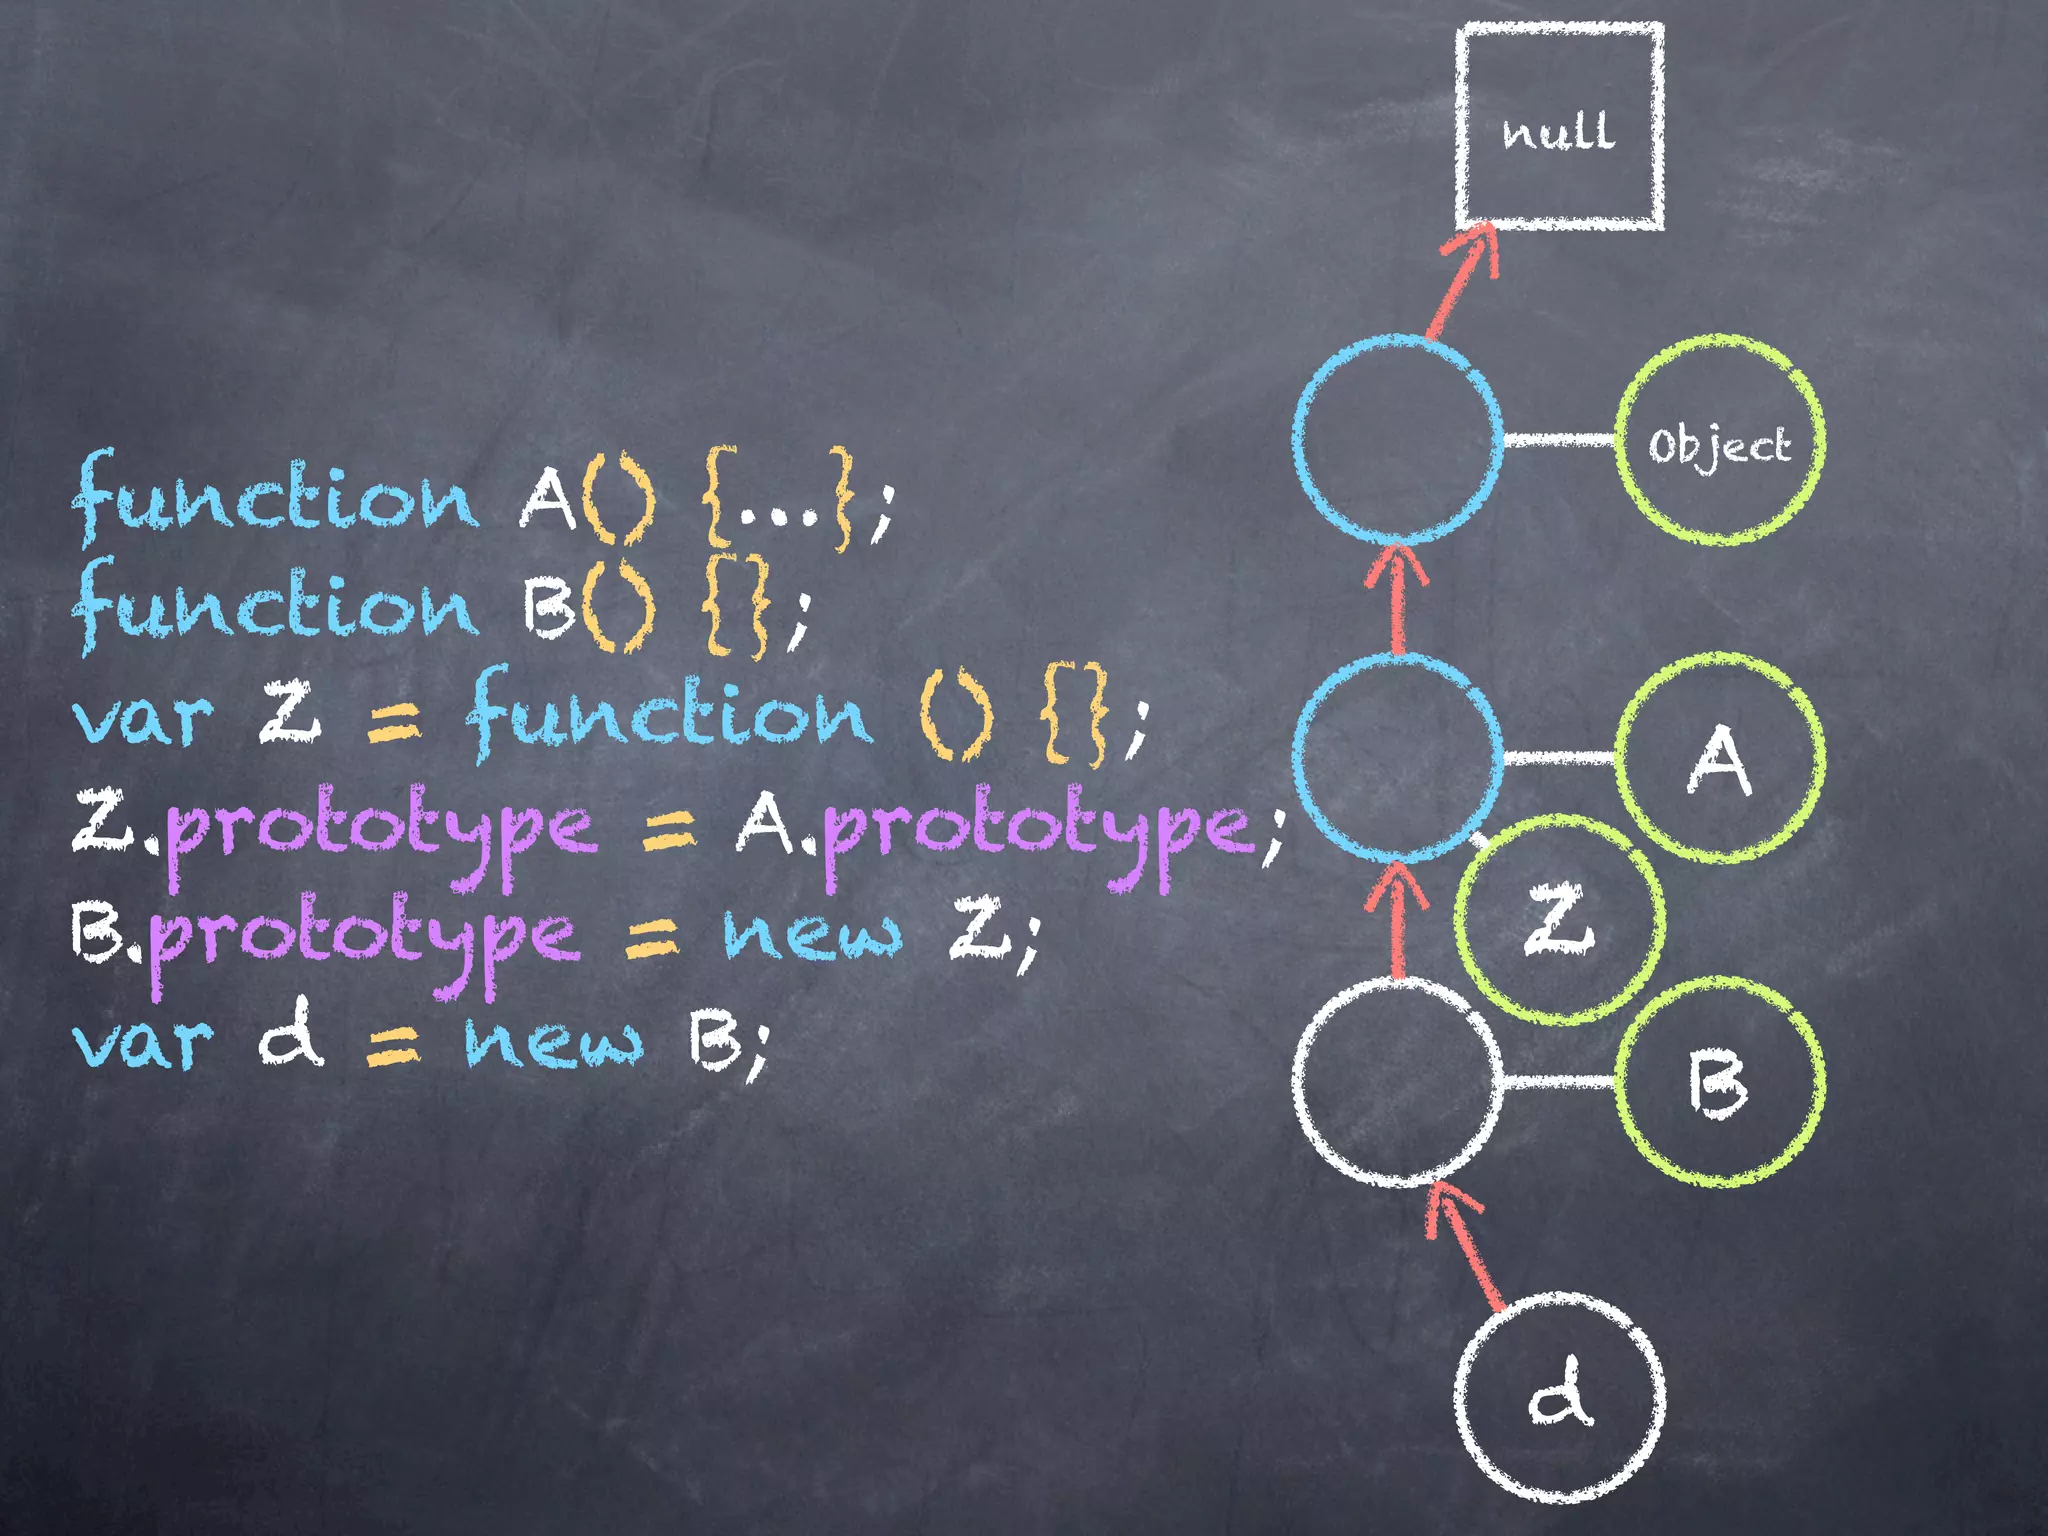 function A() {...};
function B() {};
var Z = function () {};
Z.prototype = A.prototype;
B.prototype = new Z;
var d = new B;
null
Object
A
Z
B
d